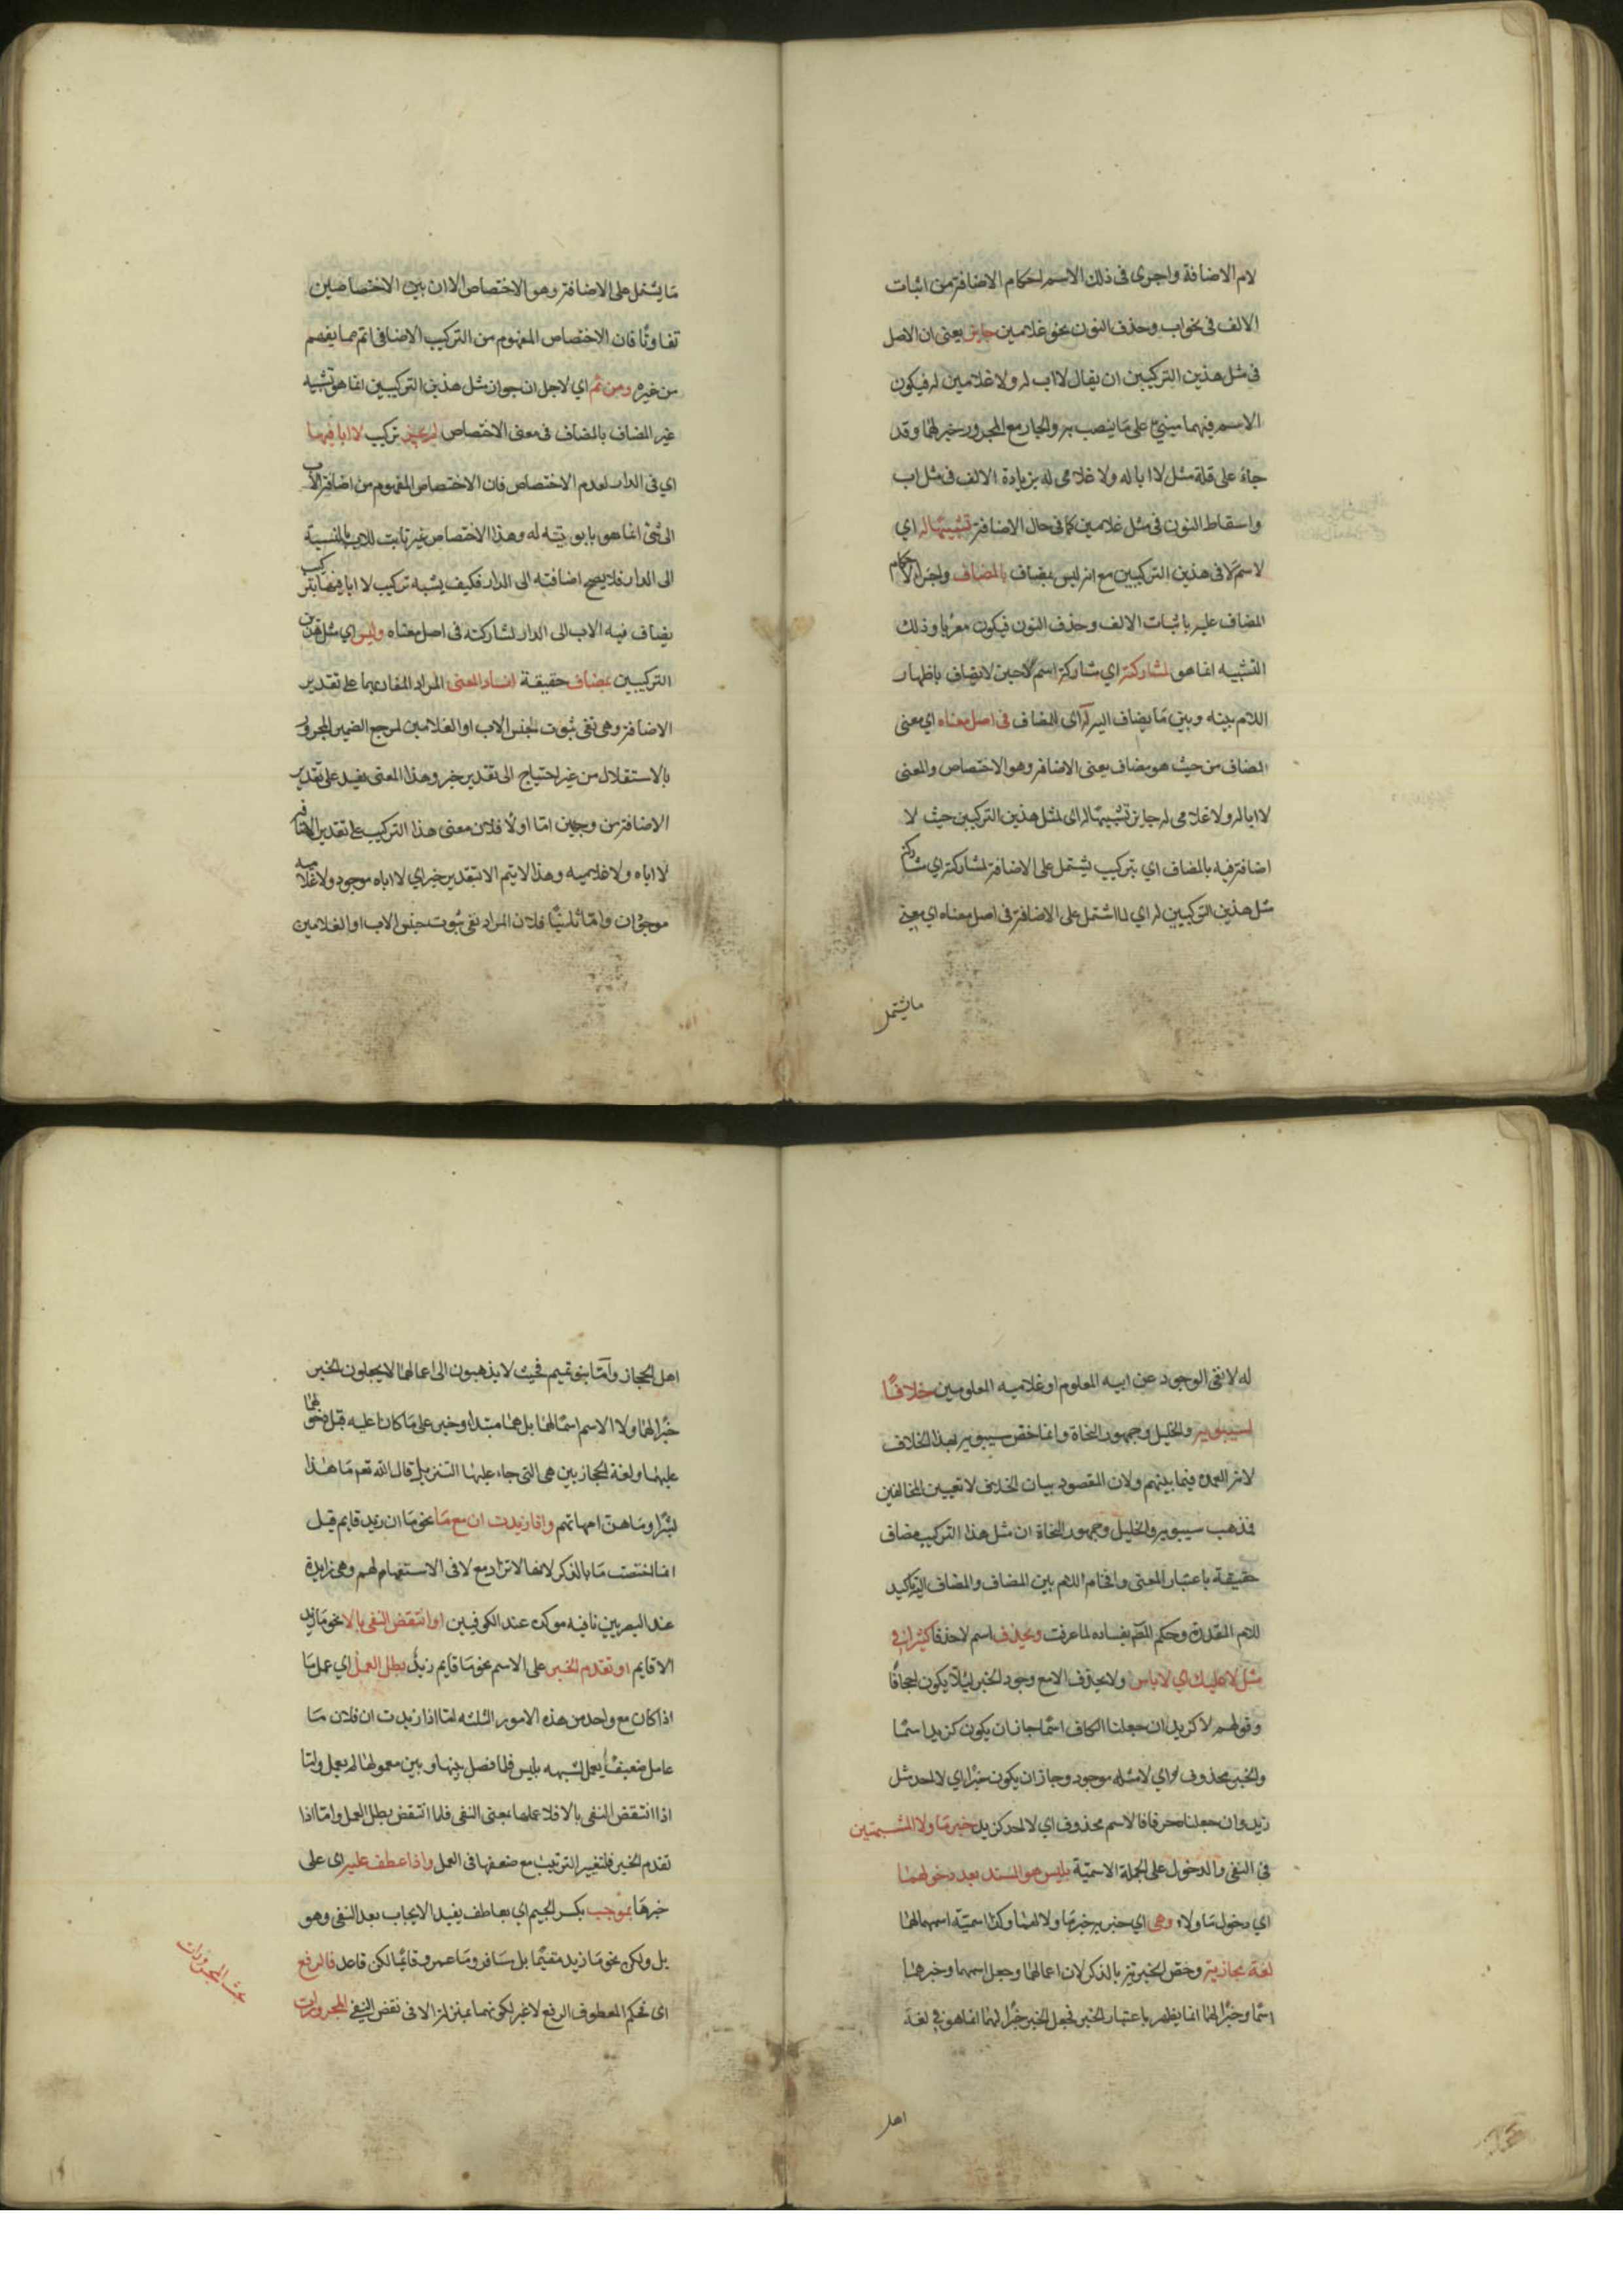 لام الاضافة واجرى فى ذلك الاسم احكام الاضافة من اثبات
الالف فى نحو اب وحذف النون نحو غلامين جايز يعنى ان الاصل
فى مثل هذين التركيبين ان يقال لا اب له ولا غلامين له فيكون
الاسم فيهما مبنيا على ما ينصب به والجار مع المجرور خبر لها وقد
جاء على قلة مثل لا ابا له ولا غلامى له بزيادة الالف فى مثل اب
واسقاط النون فى مثل غلامين كما فى حال الاضافة تشبيها له اي
لاسم لا فى هذين التركيبين مع انه ليس بمضاف بالمضاف واجراء لاحكام
المضاف عليه باثبات الالف وحذف النون فيكون معربا وذلك
التشبيه انما هو لمشاركته اي مشاركة اسم لا حين لا يضاف باظهار
اللام بينه وبين ما يضاف اليه له اى للمضاف فى اصل معناه اي معنى
المضاف من حيث هو مضاف يعنى الاضافة وهو الاختصاص والمعنى
لا ابا له ولا غلامى له جايز تشبيها له اى لمثل هذين التركيبين حيث لا
اضافة فيه بالمضاف اي بتركيب يشتمل على الاضافة لمشاركته اي مشاركة
مثل هذين التركيبين له اي لما اشتمل على الاضافة فى اصل معناه اي معنى
ما يشتمل
ما يشتمل على الاضافة وهو الاختصاص الا ان بين الاختصاصين
تفاوتًا فان الاختصاص المفهوم من التركيب الاضافى اتم مما يفهم
من غيره ومن ثم اي لاجل ان جواز مثل هذين التركيبين انما هو تشبيه
غير المضاف بالمضاف فى معنى الاختصاص لم يجز تركيب لا ابا فيها
اي فى الدار لعدم الاختصاص فان الاختصاص المفهوم من اضافة الاب
الى شئ انما هو بابوتيته له وهذا الاختصاص غير ثابت للاب بالنسبة
الى الدار فلا يصح اضافته الى الدار فكيف يشبه تركيب لا ابا فيها بتركيب
يضاف فيه الاب الى الدار لمشاركته فى اصل معناه وليس اي مثل هذين
التركيبين بمضاف حقيقة لفساد المعنى المراد المفاد بهما على تقدير
الاضافة وهى نفى ثبوت جنس الاب او الغلامين لمرجع الضمير المجرور
بالاستقلال من غير احتياج الى تقدير خبر وهذا المعنى يفسد على تقدير
الاضافة من وجهين اما اولًا فلان معنى هذا التركيب على تقدير الاضافة
لا اباه ولا غلاميه وهذا لا يتم الا بتقدير خبر اي لا اباه موجود ولا غلاميه
موجودان واما ثانيًا فلان المراد نفى ثبوت جنس الاب او الغلامين
له لا نفى الوجود عن ابيه المعلوم او غلاميه المعلومين خلافًا
لسيبويه والخليل وجمهور النحاة وانما خص سيبويه بهذا الخلاف
لانه العمدة فيما بينهم ولان المقصود بيان الخلاف لا تعيين المخالفين
فذهب سيبويه والخليل وجمهور النحاة ان مثل هذا التركيب مضاف
حقيقة باعتبار المعنى واقحام اللام بين المضاف والمضاف اليه تاكيد
للام المقدرة وحكم المص بفساده لما عرفت ويحذف اسم لا حذفا كثيرا فى
مثل لا عليك اي لا باس ولا يحذف الا مع وجود الخبر ليلا يكون اجحافًا
وقولهم لا كزيد ان جعلنا الكاف اسمًا جاز ان يكون كزيد اسمًا
والخبر محذوف اي لا مثله موجود وجاز ان يكون خبرًا اي لا احد مثل
زيد وان جعلناه حرفا فالاسم محذوف اي لا احد كزيد خبر ما ولا المشبهتين
فى النفى والدخول على الجملة الاسمية بليس هو المسند بعد دخولهما
اي دخول ما ولا وهى اي خبريته خبر ما ولا لهما وكذا اسمية اسمهما لهما
لغة حجازية وخص الخبرية بالذكر لان اعمالهما وجعل اسمهما وخبرهما
اسمًا وخبرًا لهما انما يظهر باعتبار الخبر فجعل الخبر خبرًا لهما انما هو فى لغة
اهل
اهل الحجاز واما بنو تميم فحيث لا يذهبون الى اعمالهما لا يجعلون الخبر
خبرًا لهما ولا الاسم اسمًا لهما بل هما مبتدا وخبر على ما كانا عليه قبل دخولهما
عليهما ولغة الحجازيين هى التى جاء عليها التنزيل قال الله تعم ما هذا
بشرًا وما هن امهاتهم واذا زيدت ان مع ما نحو ما ان زيد قايم قيل
انما اختصت ما بالذكر لانها لا تزاد مع لا فى الاستفهام لهم وهى زايدة
عند البصريين نافية موكدة عند الكوفيين او انتقض النفى بالا نحو ما زيد
الا قايم او تقدم الخبر على الاسم نحو ما قايم زيدٌ بطل العمل اي عمل ما
اذا كان مع واحد من هذه الامور الثلثة اما اذا زيدت ان فلان ما
عامل ضعيف يعمل لشبهه بليس فلما فصل بينها وبين معمولها لم يعمل واما
اذا انتقض النفى بالا فلان عملها بمعنى النفى فلما انتقض بطل العمل واما اذا
تقدم الخبر فلتغيير الترتيب مع ضعفها فى العمل واذا عطف عليه اى على
خبرها بموجب بكسر الجيم اي بعاطف يفيد الايجاب بعد النفى وهو
بل ولكن نحو ما زيد مقيمًا بل مسافر وما عمرو قايمًا لكن قاعد فالرفع
اى فحكم المعطوف الرفع لا غير لكونهما بمنزلة الا فى نقض النفى المجرورات
المجرورات